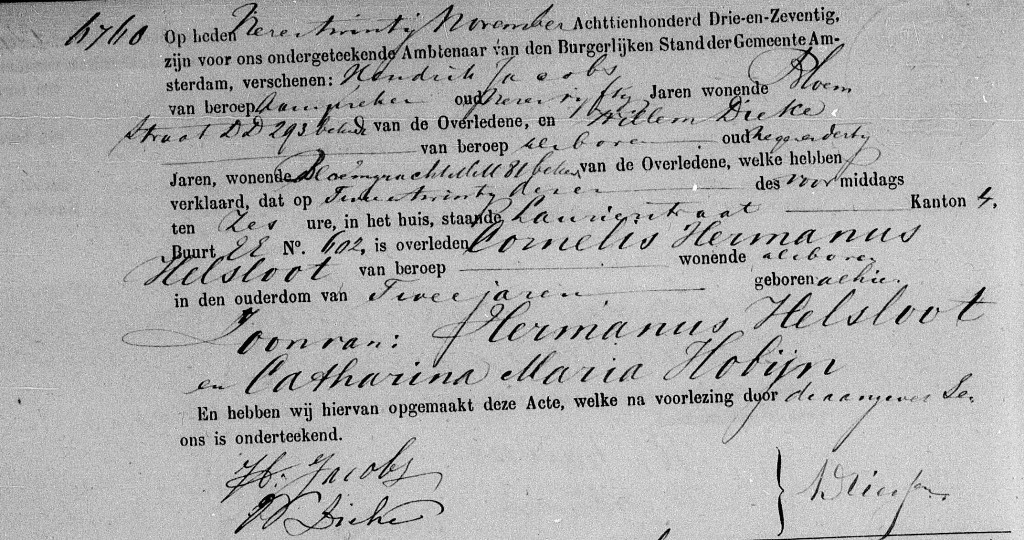 6760
Op heden Vierentwintig November Achttienhonderd Drie-en-Zeventig,
zijn voor ons ondergeteekende Ambtenaar van den Burgerlijken Stand der Gemeente Am-
sterdam, verschenen: Hendrik Jacobs
van beroep Aanspreker oud vierenvyftig Jaren wonende Bloem
straat DD 293 bekende van de Overledene, en Willem Dieke
van beroep als boven oud negenendertig
Jaren, wonende Bloemgracht 81 bekende van de Overledene, welke hebben
verklaard, dat op Tweeentwintig dezer des voor middags
ten Zes ure, in het huis, staande Laurierstraat Kanton 4,
Buurt EE No. 602, is overleden Cornelis Hermanus
Helsloot van beroep wonende als boven
in den ouderdom van Twee jaren geboren alhier
Zoon van: Hermanus Helsloot
en Catharina Maria Hobijn
En hebben wij hiervan opgemaakt deze Acte, welke na voorlezing door de aangevers en
ons is onderteekend.
H. Jacobs
W Dieke